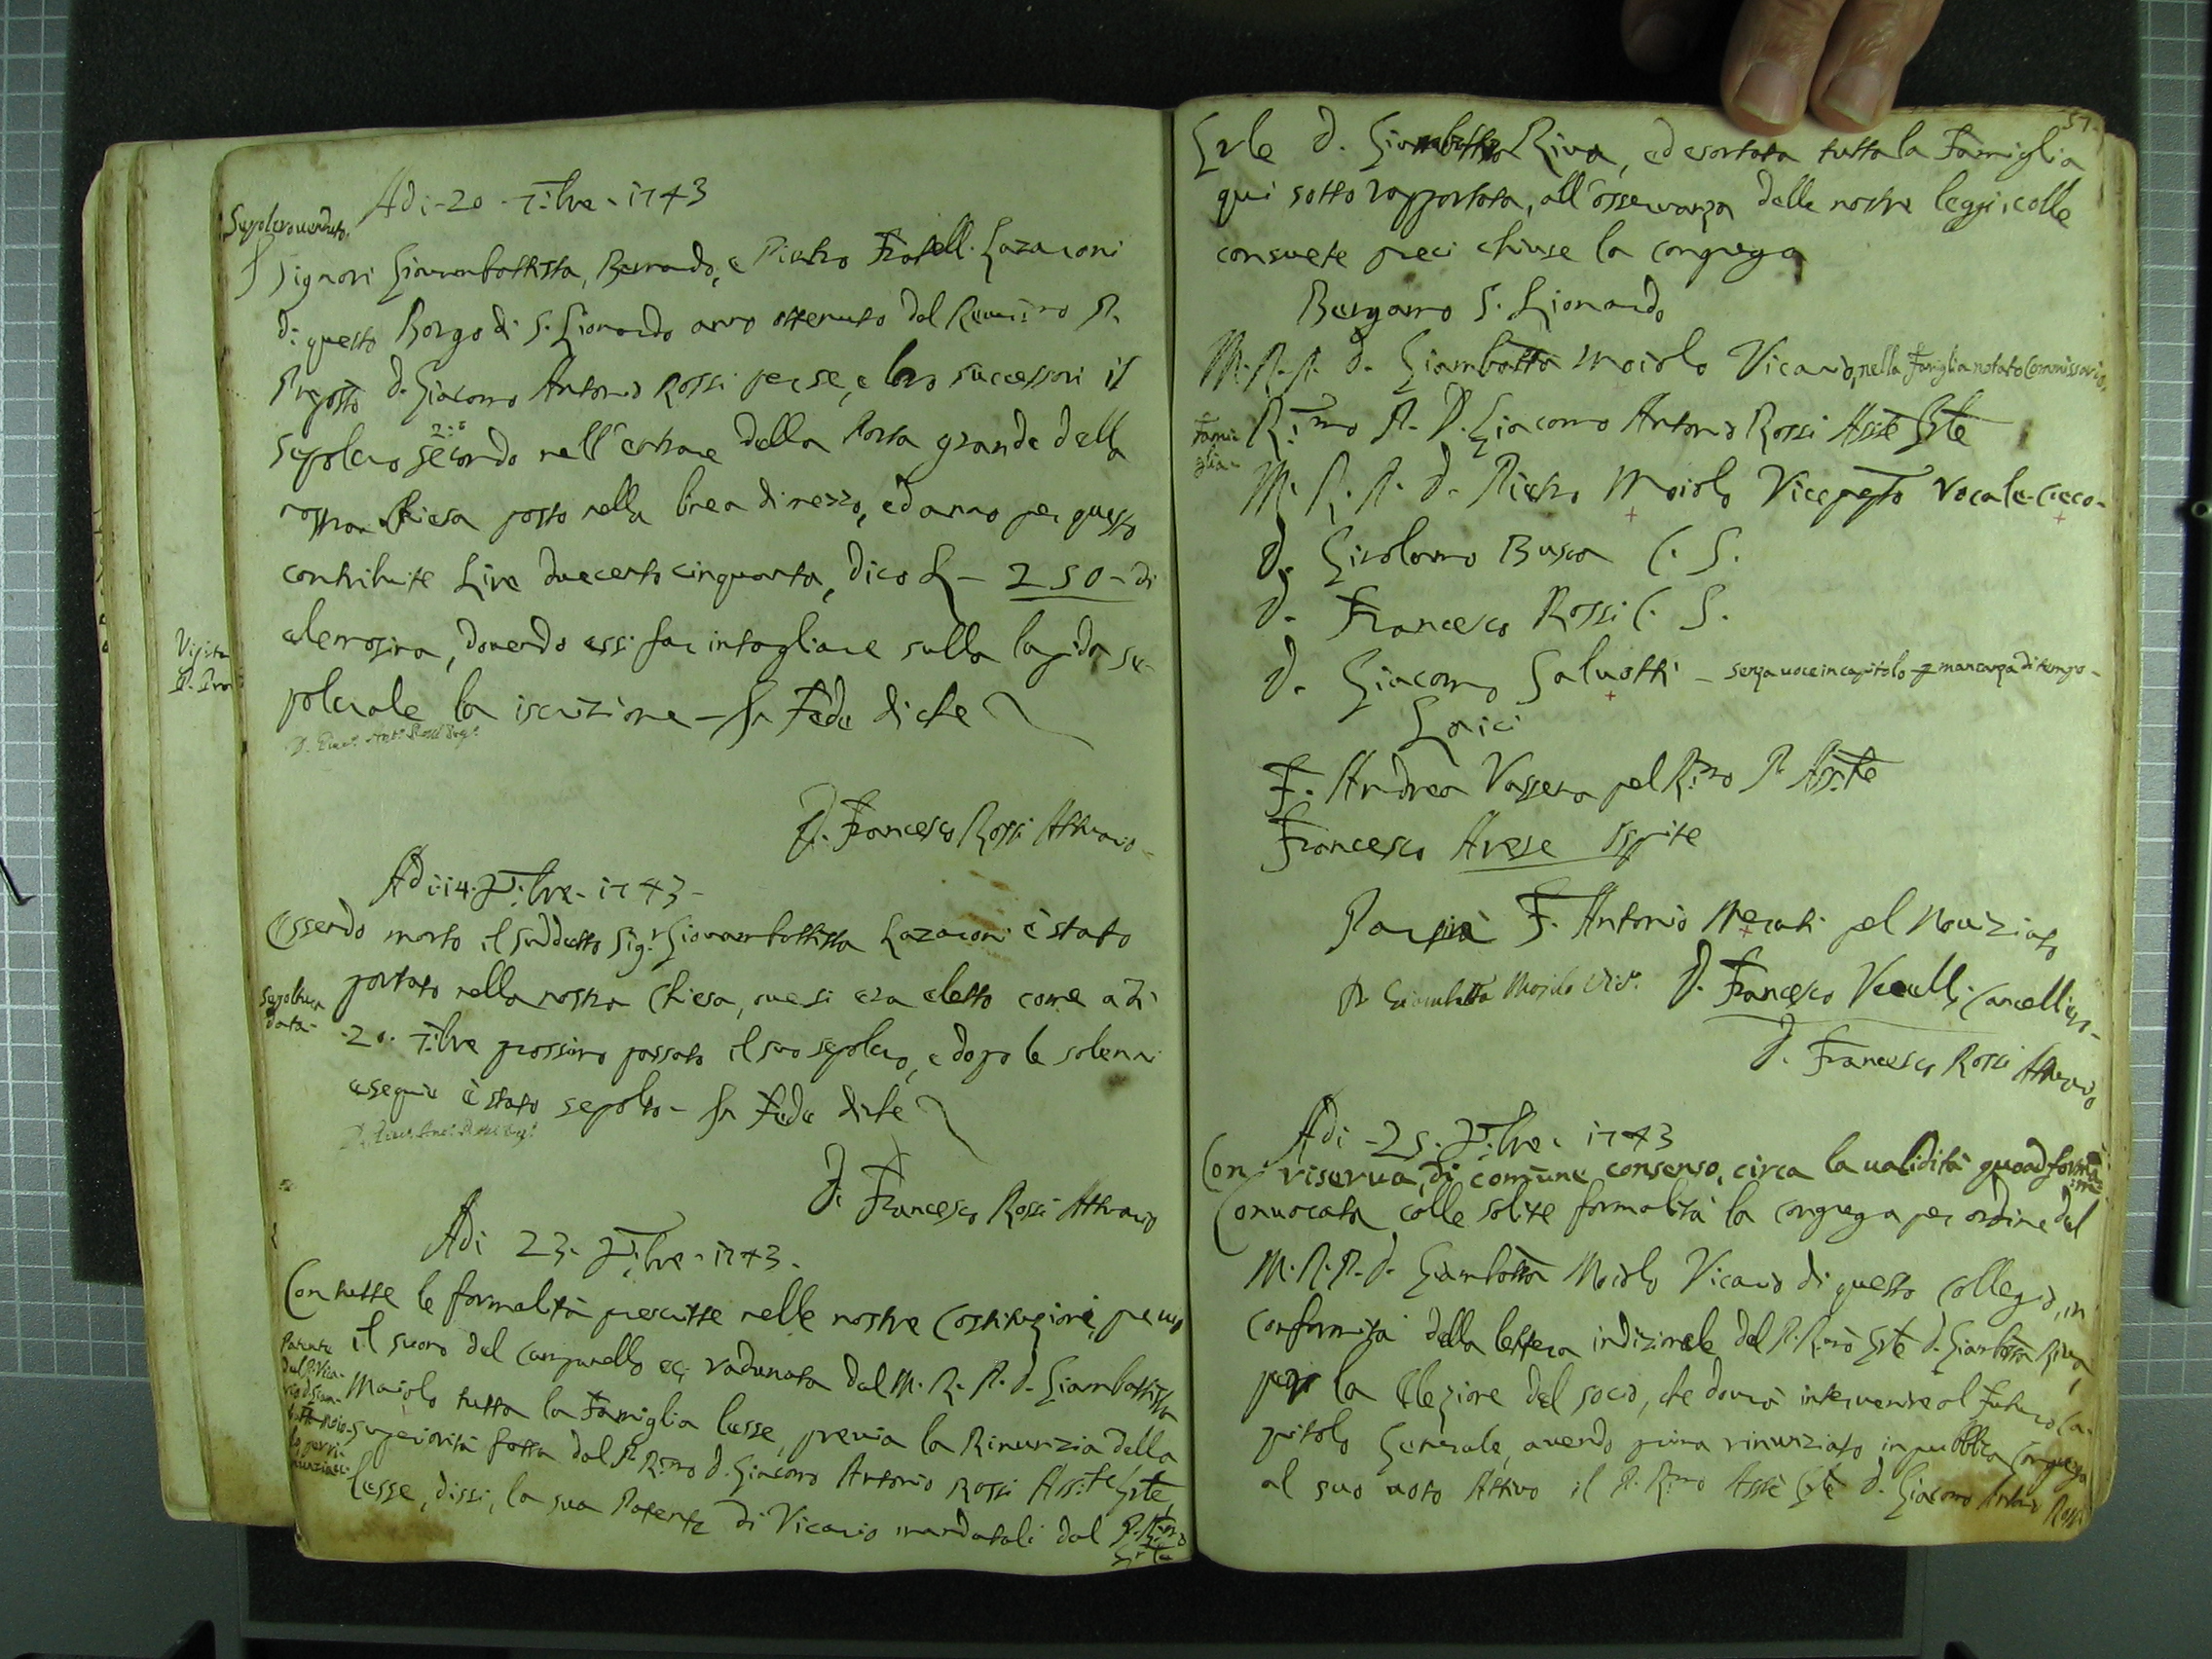 Adi-20-7:bre-1743
Sepolcro venduto.
Signori Giovambattista, Bernardo, e Pietro Fratelli Lazaroni
di questo Borgo di S. Lionardo anno ottenuto dal Revmo P.
Pregosto d. Giacomo Antonio Rossi per se, e loro successori il
sepolcro secondo nell'entrare della Porta grande della
nostra Chiesa posto nella linea di mezzo, ed anno per questo
contribuite Lire duecento cinquanta, dico L- 250- di
elemosina, dovendo essi far intagliare sulla lapida se-
polcrale la iscrizione - In Fede di che
D. Giac. Ant. Rossi Prep.
D. Francesco Rossi Attuario-
Adi-14. Xbre-1743-
Essendo morto il suddetto Sig.r Giovambattista Lazaroni è stato
portato nella nostra Chiesa, ove si era eletto come adì
Sepoltura
data-
-20. 7:bre prossimo passato il suo sepolcro, e dopo le solenni
esequie è stato sepolto- In Fede di che
D. Giac. Ant. Rossi Prep.
D. Francesco Rossi Attuario
Adi 23. Xbre-1743-
Con tutte le formalità prescritte nelle nostre Costituzioni, previo
il suono del Campanello ec; radunata dal M. R. P. d. Giambattista
Patente
del P. Vica-
rio d. Giam-
Maiolo tutta la Famiglia lesse, previa la Rinunzia della
superiorità fatta dal P. Rmo d. Giacomo Antonio Rossi Assite Gnle
lesse, dissi, la sua Patente di Vicario mandatali dal P. Rmo
57.
Gnle d. Giambattista Riva, ed esortata tutta la Famiglia
qui sotto rapportata, all'osservanza delle nostre leggi, colle
consuete preci chiuse la congrega
Bergamo S. Lionardo
M. R. P. d. Giambatta Moiolo Vicario, nella Famiglia notato Commissario.
Fami-
glia-
R:mo P. D. Giacomo Antonio Rossi Assite Gnle
M. R. P. d. Pietro Moiolo Vicepropto vocale-Cieco-
d. Girolamo Busca C. S.
d. Francesco Rossi C. S.
d. Giacomo Salvotti - senza voce in capitolo p mancanza di tempo-
Laici
F. Andrea Vassena pel R:mo P. Assite
Francesco Avesse ospite
F. Antonio Mecati pel Noviziato
D. Giambatta Mojolo Vic.o D. Francesco Vecelli Cancelliere-
D. Francesco Rossi Attuario
Adi -25. Xbre- 1743
Con riserva, di comune consenso, circa la validità quoad formam
Convocata colle solite formalità la congrega per ordine del
M. R. P. d. Giambatta Moiolo Vicario di questo Collegio, in
conformità della lettera indizionale del P. Rmo Gnle d. Giambatta Riva,
per la Elezione del socio, che dovrà intervenire al futuro Ca-
pitolo Generale, avendo prima rinunziato in pubblica Congrega
al suo voto Attivo il P. R:mo Assite Gnle d. Giacomo Antonio Rossi